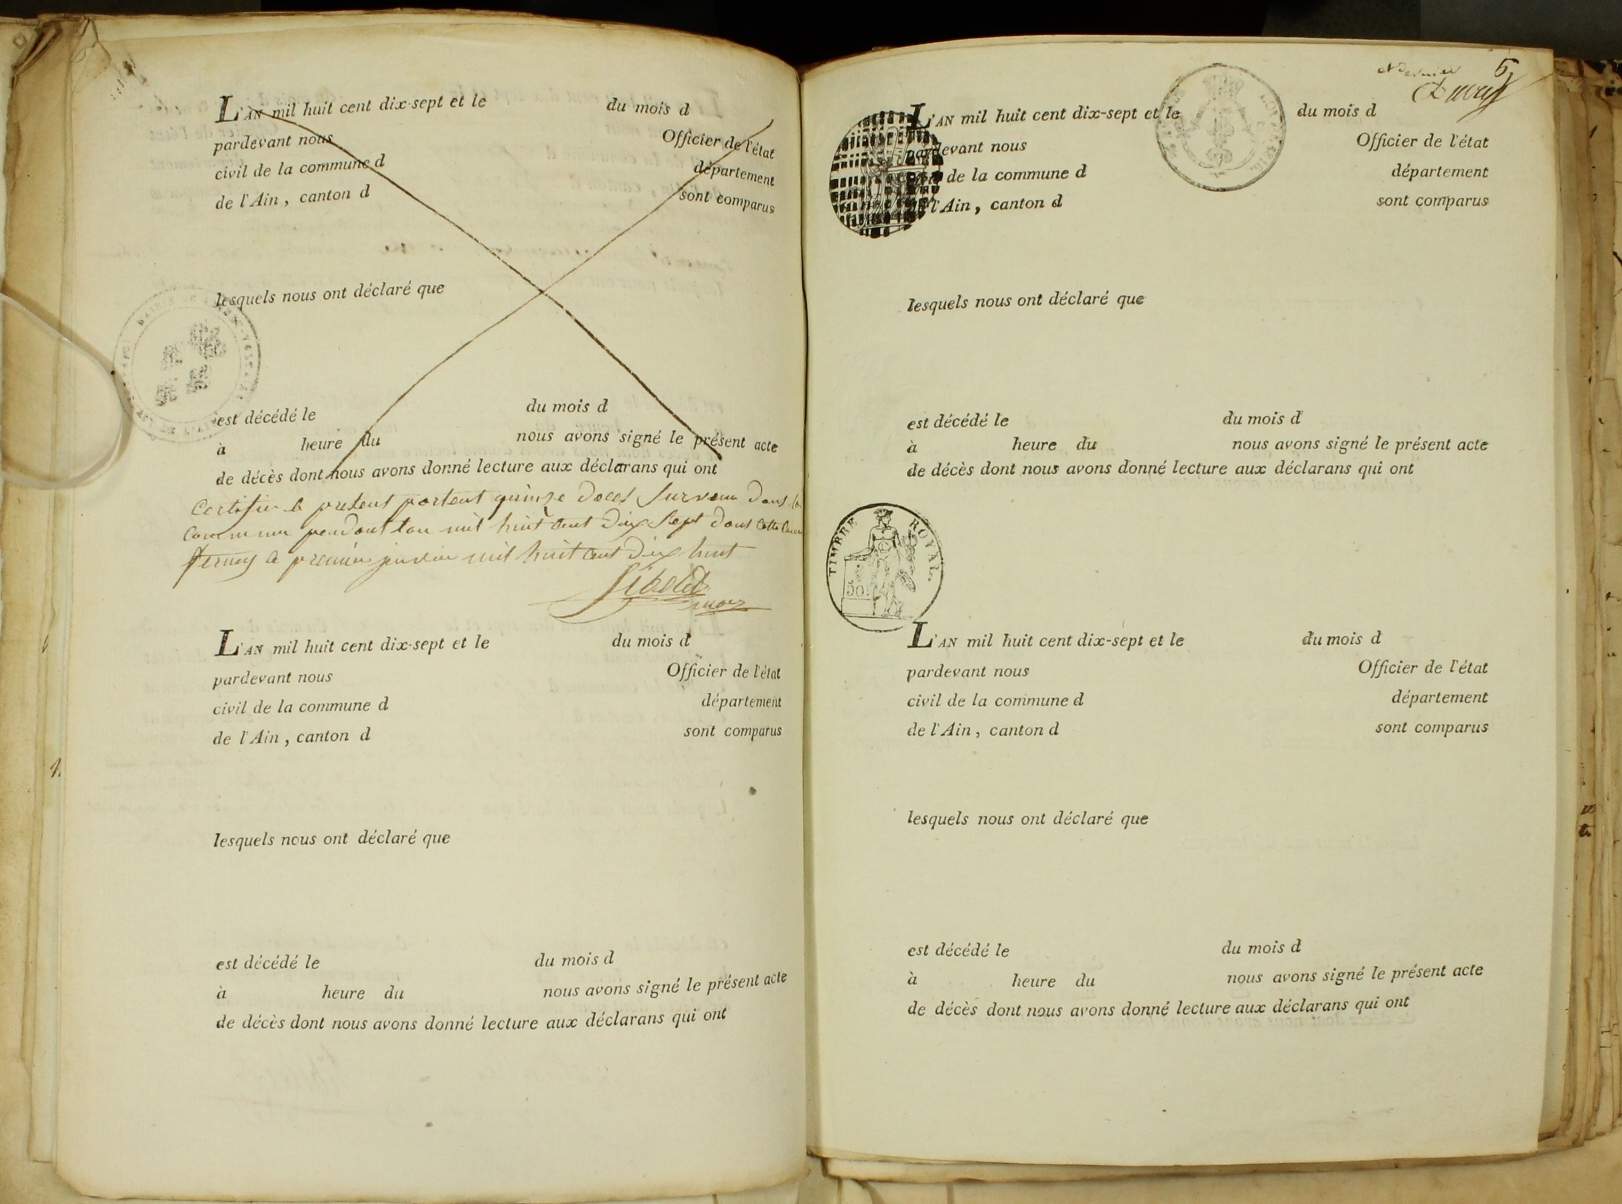 L'AN mil huit cent dix-sept et le du mois d
pardevant nous Officier de l'état
civil de la commune d département
de l'Ain, canton d sont comparus
lesquels nous ont déclaré que
est décédé le du mois d
à heure du nous avons signé le présent acte
de décès dont nous avons donné lecture aux déclarans qui ont
Certifie le présent portant quinze décès survenu dans la
commune pendant l'an mil huit cent dix sept dont cette
ferney le premier janvier mil huit cent dix huit
L'AN mil huit cent dix-sept et le du mois d
pardevant nous Officier de l'état
civil de la commune d département
de l'Ain, canton d sont comparus
lesquels nous ont déclaré que
est décédé le du mois d
à heure du nous avons signé le présent acte
de décès dont nous avons donné lecture aux déclarans qui ont
5
L'AN mil huit cent dix-sept et le du mois d
pardevant nous Officier de l'état
de la commune d département
l'Ain, canton d sont comparus
lesquels nous ont déclaré que
est décédé le du mois d
à heure du nous avons signé le présent acte
de décès dont nous avons donné lecture aux déclarans qui ont
TIMBRE ROYAL.
50
L'AN mil huit cent dix-sept et le du mois d
pardevant nous Officier de l'état
civil de la commune d département
de l'Ain, canton d sont comparus
lesquels nous ont déclaré que
est décédé le du mois d
à heure du nous avons signé le présent acte
de décès dont nous avons donné lecture aux déclarans qui ont